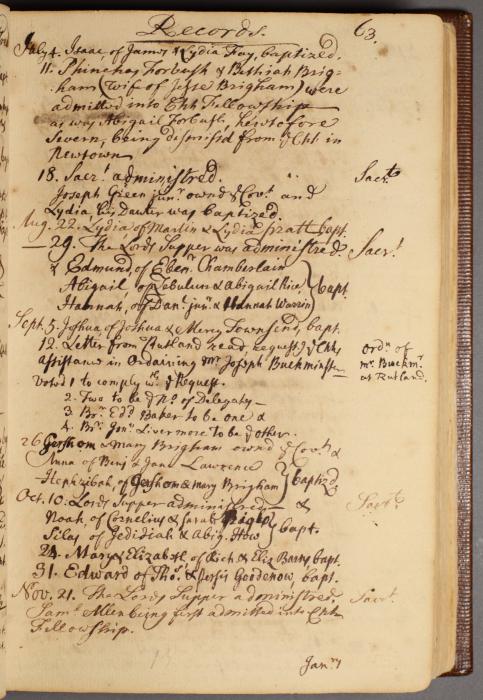 Records. 63.
July 4. Isaac, of James & Lydia Fay, baptized.
11. Phinehas Forbush & Bethiah Brig-
ham (wife of Jesse Brigham) were
admitted into Chh Fellowship
as was Abigail Forbush, heretofore
Severn, being dismiss'd from ye Chh in
Newtown
18. Sacrt administred. Sacrt
Joseph Green junr ownd ye Covt and
Lydia, his Daughter was baptized.
Aug. 22. Lydia of Martin & Lydia Pratt bapt.
29. The Lords Supper was administred. Sacrt
& Edmund of Ebenr Chamberlain
Abigail of Zebulun & Abigail Rice bapt.
Hannah, of Danl junr & Hannah Warrin
Sept. 5. Joshua of Joshua & Mercy Townsend, bapt.
12. Letter from Rutland read, request ye Chhs ordn of
assistance in Ordaining Mr Joseph Buckminster mr Buckmr
Voted 1 to comply wth ye Request. at Rutland.
2. Two to be ye No of Delegates
3 Br. Edd Baker to be one &
4. Br. Jonn Livermore to be ye other.
26 Gershom & Mary Brigham ownd ye Covt &
Anna of Benj & Jane Lawrence
Hephzibah, of Gershom & Mary Brigham baptizd
Oct. 10. Lords Supper administred & Sacrt
Noah, of Cornelius & Sarah bapt.
Silas of Jedidiah & Abig. How
24. Mary & Elizabeth of Rich & Eliz Barns bapt.
31. Edward of Thos. & Persis Goodenow, bapt.
Nov. 21. The Lords Supper administred. Sacrt
Saml Allen being first admitted into Chh
Fellowship.
Janry